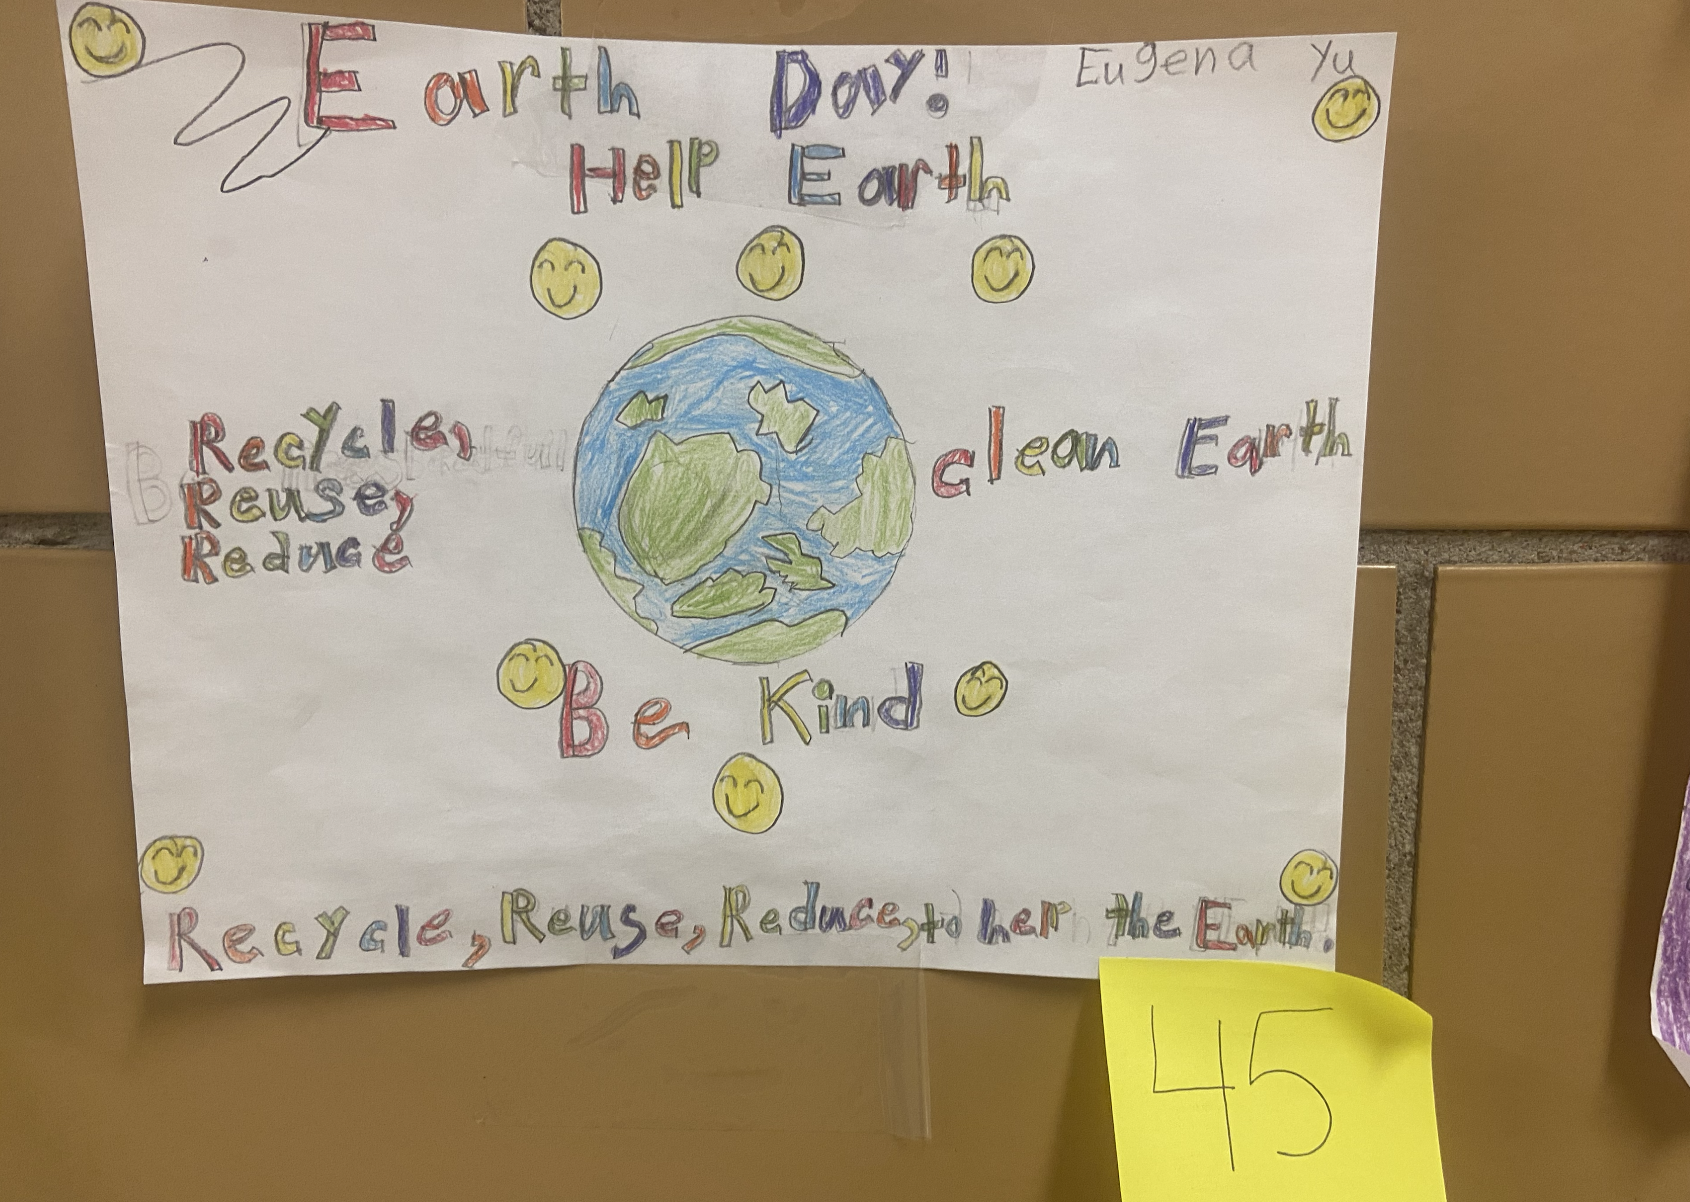 Earth Day!
Eugena Yu
Help Earth
Recycle,
Reuse,
Reduce
clean Earth
Be Kind
Recycle, Reuse, Reduce, to help the Earth.
45